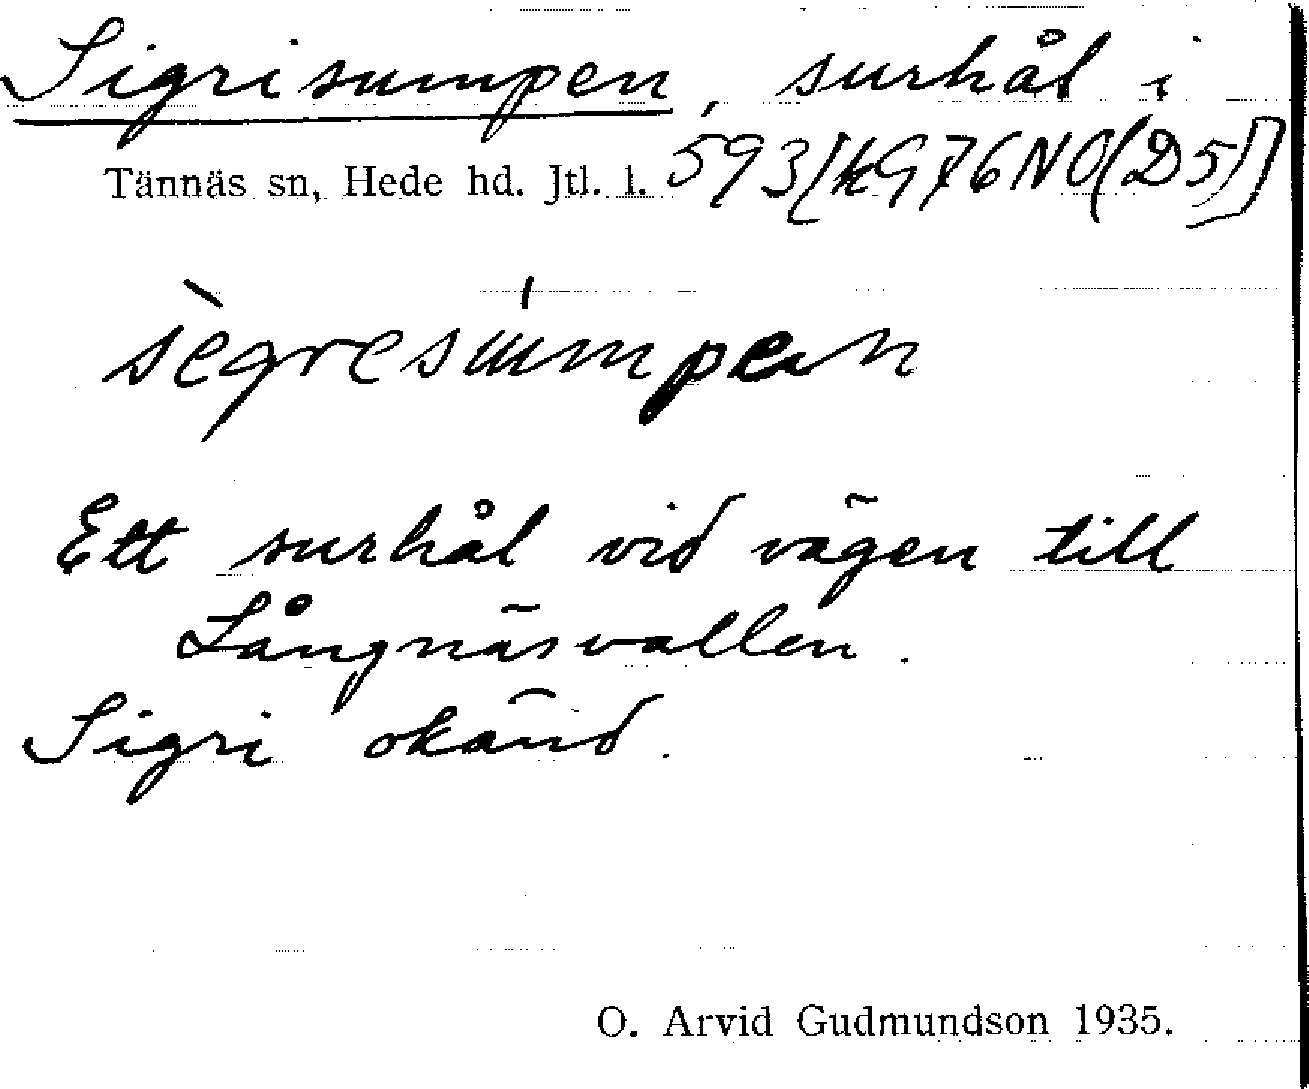 Sigrisumpen, surhål i
Tännäs sn, Hede hd. Jtl. l. 593[kG76NO(D5)]
sègresúmpen
Ett surhål vid vägen till
Långnäsvallen.
Sigri okänd.
O. Arvid Gudmundson 1935.